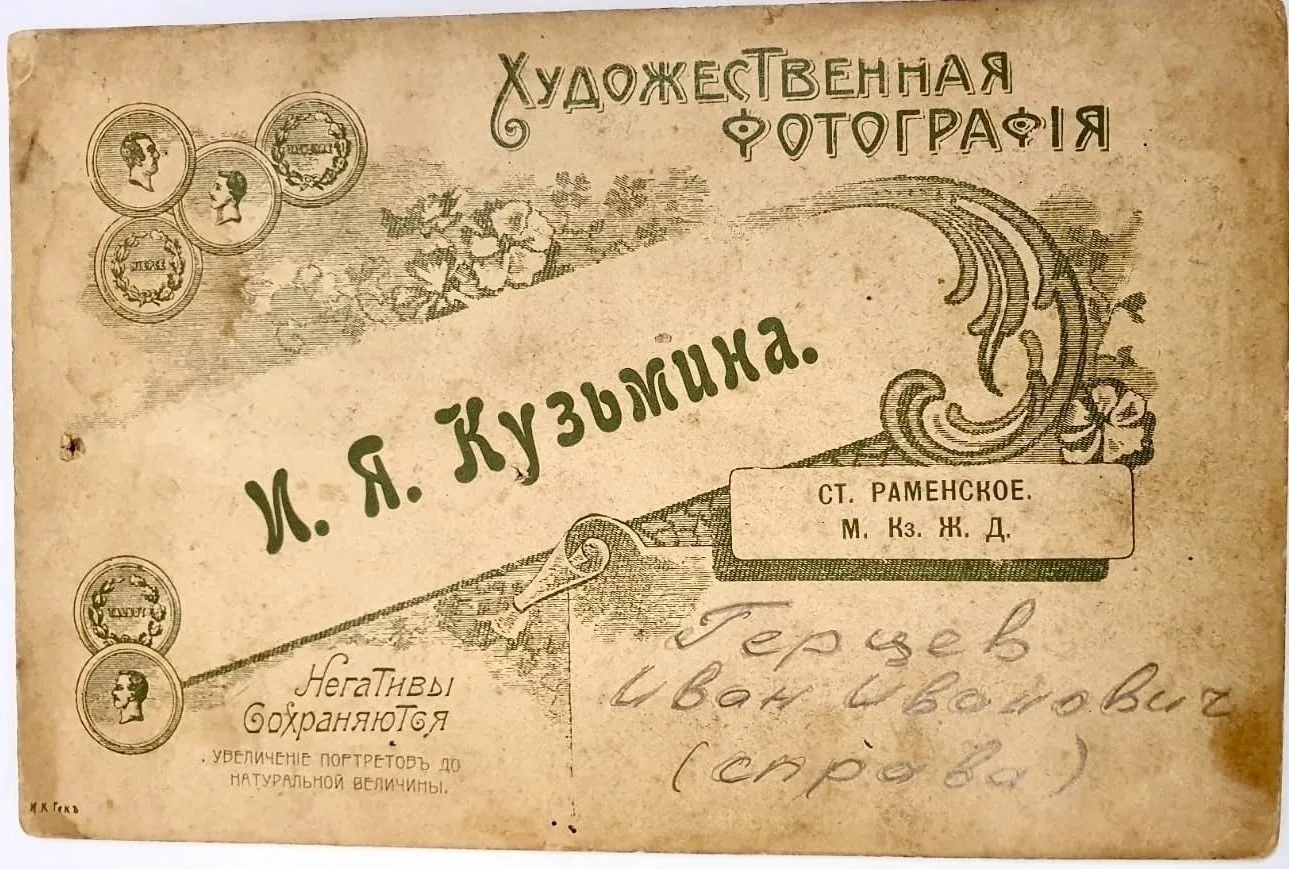 Художественная
Фотографія
И. Я. Кузьмина.
СТ. РАМЕНСКОЕ.
М. Кз. Ж. Д.
Негативы
Сохраняются
УВЕЛИЧЕНІЕ ПОРТРЕТОВЪ ДО
НАТУРАЛЬНОЙ ВЕЛИЧИНЫ.
Герцев
Иван Иванович
(справа)
И К Гекъ